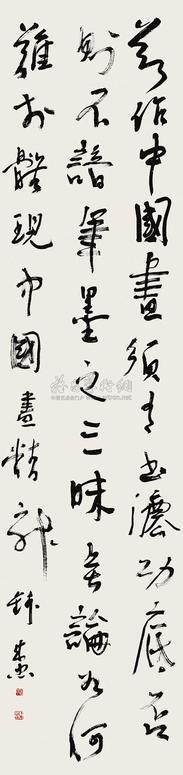 欲作中國畫須有書法功底否
則不諳筆墨之三昧無論如何
難於體現中國畫精神